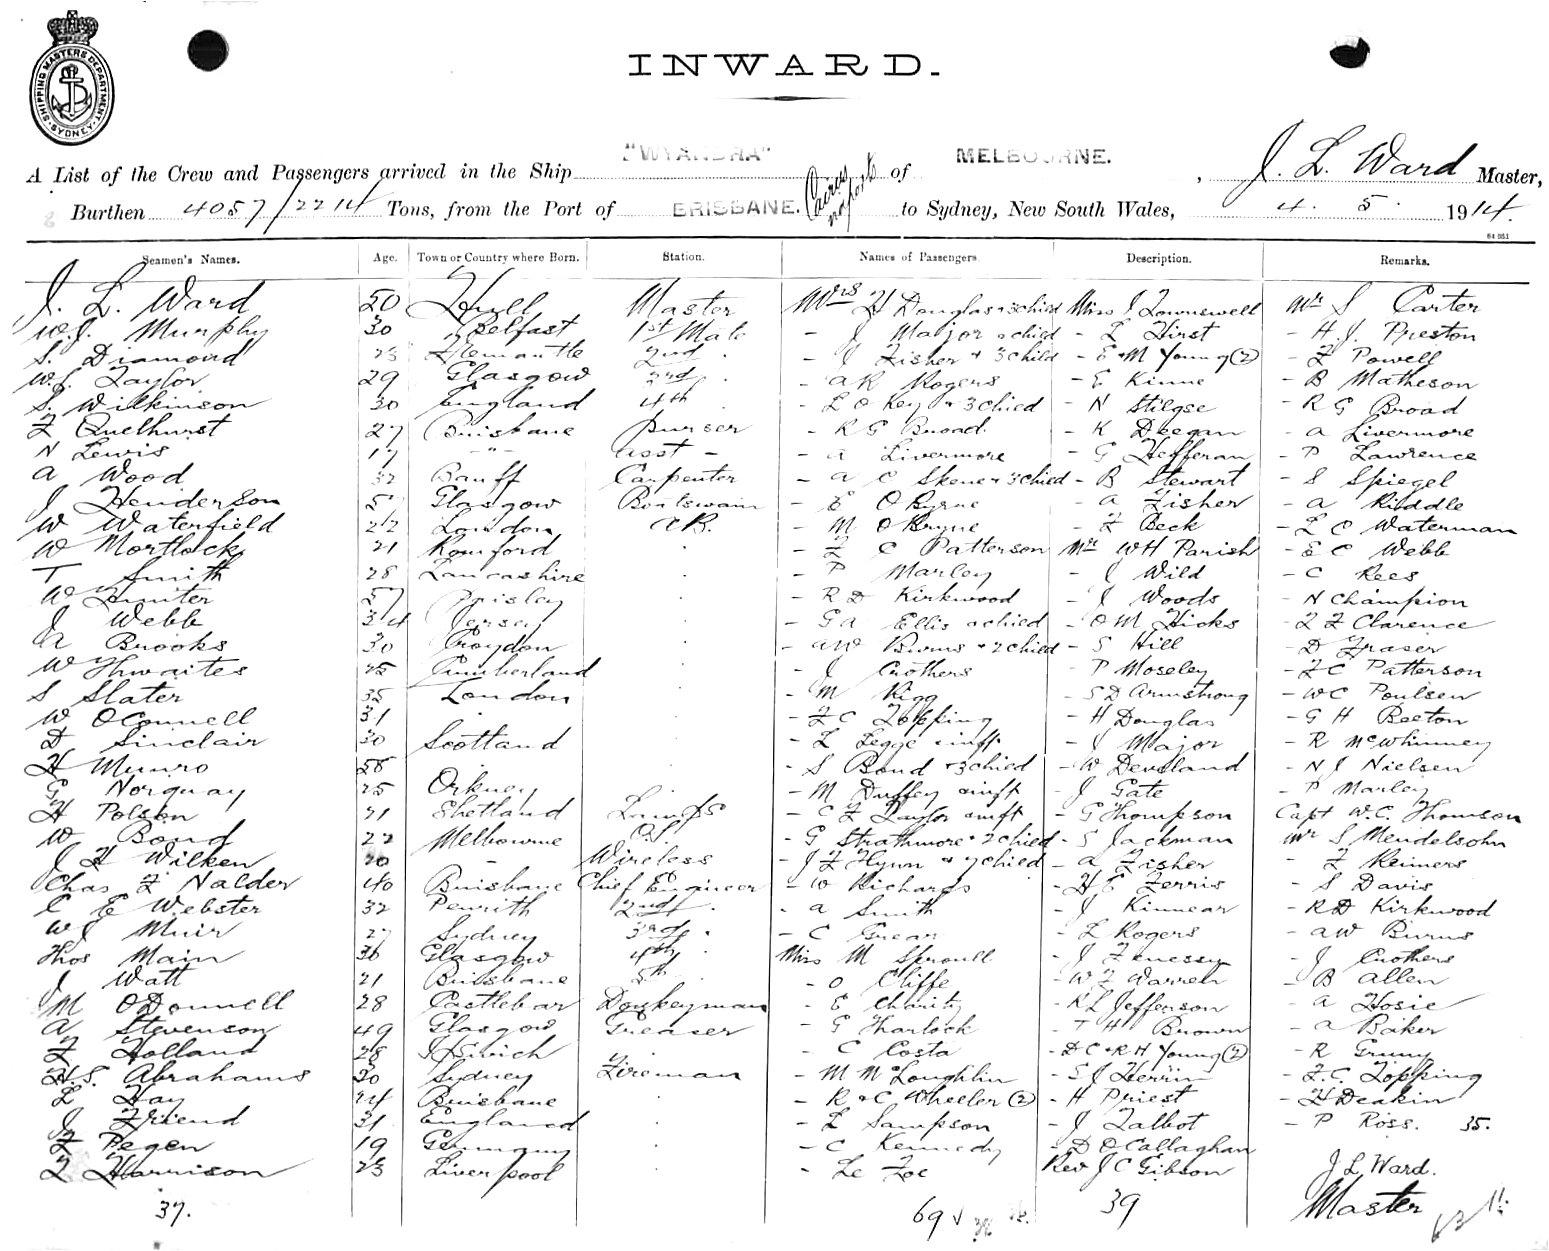 SHIPPING MASTERS DEPARTMENT. SYDNEY.
INWARD.
A List of the Crew and Passengers arrived in the Ship "WYANDRA" of MELBOURNE. , J. L. Ward Master,
Burthen 4057/2214 Tons, from the Port of BRISBANE. Cairns & ports to Sydney, New South Wales, 4. 5. 1914.
64 351
Seamen's Names. Age. Town or Country where Born. Station. Names of Passengers. Description. Remarks.
J. L. Ward 50 Hull Master Mrs H Douglas + 3 child Miss J Townswell Mr S Carter
W.J. Murphy 30 Belfast 1st Mate - J Major & child - L Hirst - H. J. Preston
S. Diamond 23 Fremantle 2nd . - J Fisher + 3 child - E & M Young (2) - F Powell
W.J. Taylor 29 Glasgow 3rd . - A R Rogers - E Kinne - B Matheson
S. Wilkinson 30 England 4th . - L O Key + 3 child - N Stilgoe - R G Broad
F Quelhurst 27 Brisbane Purser - R G Broad - K Deegan - A Livermore
N Lewis 17 - " - Asst - - A Livermore - G Hefferan - P Lawrence
A Wood 32 Banff Carpenter - A C Skene + 3 child - B Stewart - S Spiegel
J Henderson 51 Glasgow Boatswain - E O Byrne - A Fisher - A Riddle
W Waterfield 22 London A.B. - M O Bryne - F Beck - L C Waterman
W Mortlock 21 Romford . - F C Patterson Mr W H Parish - E C Webb
T Smith 28 Lancashire . - P Marley - J Wild - C Rees
W Hunter 57 Paisley . - R D Kirkwood - J Woods - N Champion
J Webb 34 Jersey . - G A Ellis & child - O M Hicks - F F Clarence
A Brooks 30 Croydon . - A W Burns + 2 child - S Hill - D Fraser
W Thwaites 25 Cumberland . - J Crothers - P Moseley - F C Patterson
S Slater 35 London . - M Rigg - S D Armstrong - W C Poulsen
W O'Connell 31 . . - F C Topping - H Douglas - G H Beeton
D Sinclair 30 Scotland . - L Legge & inft - J Major - R McWhinney
H Munro 58 . - S Bond + 3 child - W Develand - N J Nielsen
G Norquay 25 Orkney . - M Duffey & inft - J Gate - P Marley
H Polson 21 Shetland Lamps - C F Taylor & inft - G Thompson Capt W. C. Thomson
W Bond 22 Melbourne O.S. - G Strathmore + 2 child - S Jackman Mr S Mendelsohn
J H Wilken 20 - Wireless - J F Flynn + 7 child - A Fisher - F Reimers
Chas F Nalder 40 Brisbane Chief Engineer - W Richards - H E Ferris - S Davis
C E Webster 32 Penrith 2nd . - A Smith - J Kinnear - R D Kirkwood
W J Muir 27 Sydney 3rd . - C Grear - L Rogers - A W Burns
Thos Main 36 Glasgow 4th . Miss M Sproull - J Fenessy - J Crothers
J Watt 21 Brisbane 5th . - O Cliffe - W F Warren - B Allen
M O'Donnell 28 Castlebar Donkeyman - E Charity - R L Jefferson - A Hosie
A Stevenson 49 Glasgow Greaser - G Tharlock - T H Brown - A Baker
F Holland 28 Ipswich . - C Costa - D C & R H Young (2) - R Grumy
H. S. Abrahams 30 Sydney Fireman - M McLoughlin - S J Herrin - F. C. Topping
L Hay 24 Brisbane . - R & C Wheeler (2) - H Priest - H Deakin
J Friend 31 England . - L Sampson - J Talbot - P Ross. 35.
F Pegen 19 Germany . - C Kennedy - D O'Callaghan
T Harrison 23 Liverpool . - Le Foe Rev J C Gibson J L Ward.
37. 69 39 Master